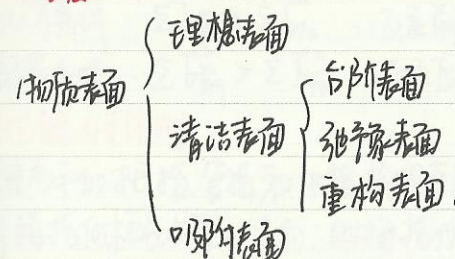 理想表面
物质表面
清洁表面
台阶表面
弛豫表面
重构表面
吸附表面